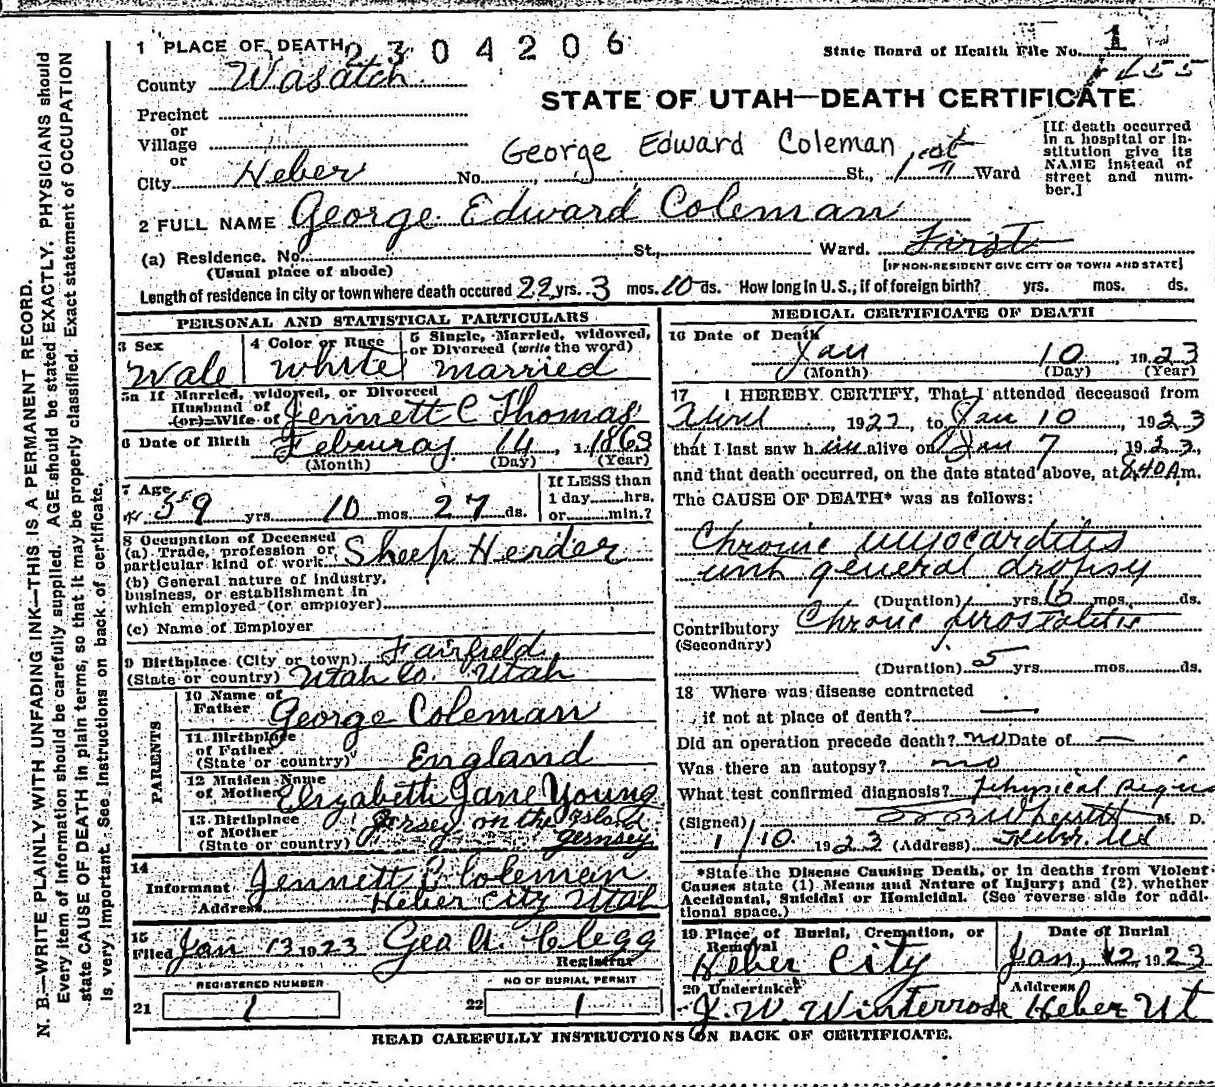 1 PLACE OF DEATH 2304206
State Board of Health File No. 1
County Wasatch
STATE OF UTAH—DEATH CERTIFICATE
Precinct
or
Village
or
City Heber No. St., 1st Ward
George Edward Coleman
[If death occurred in a hospital or institution give its NAME instead of street and number.]
2 FULL NAME George Edward Coleman
(a) Residence. No. St., Ward. First
(Usual place of abode)
[IF NON-RESIDENT GIVE CITY OR TOWN AND STATE]
Length of residence in city or town where death occured 22 yrs. 3 mos. 10 ds. How long in U.S., if of foreign birth? yrs. mos. ds.
PERSONAL AND STATISTICAL PARTICULARS
3 Sex
Male
4 Color or Race
white
5 Single, Married, widowed,
or Divorced (write the word)
married
5a If Married, widowed, or Divorced
Husband of
(or) Wife of Jennett C Thomas
6 Date of Birth Februray 14, 1863
(Month) (Day) (Year)
7 Age
59 yrs. 10 mos. 27 ds.
If LESS than
1 day hrs.
or min.?
8 Occupation of Deceased
(a) Trade, profession or
particular kind of work Sheep Herder
(b) General nature of industry,
business, or establishment in
which employed (or employer)
(c) Name of Employer
9 Birthplace (City or town) Fairfield
(State or country) Utah Co. Utah
PARENTS
10 Name of
Father George Coleman
11 Birthplace
of Father
(State or country) England
12 Maiden Name
of Mother Elizabeth Jane Young
13 Birthplace
of Mother
(State or country) Jersey on the Island Gernsey
14
Informant Jennett C Coleman
Address Heber City Utah
15
Filed Jan 13 1923 Geo A. Clegg
Registrar
REGISTERED NUMBER
21 1
NO OF BURIAL PERMIT
22 1
MEDICAL CERTIFICATE OF DEATH
16 Date of Death
Jan 10, 1923
(Month) (Day) (Year)
17 I HEREBY CERTIFY, That I attended deceased from
1922, to Jan 10, 1923
that I last saw him alive on Jan 7, 1923,
and that death occurred, on the date stated above, at 8.40 A.m.
The CAUSE OF DEATH* was as follows:
Chronic myocarditis
with general dropsy
(Duration) yrs. mos. ds.
Contributory Chronic prostatitis
(Secondary)
(Duration) 5 yrs. mos. ds.
18 Where was disease contracted
if not at place of death? —
Did an operation precede death? no Date of —
Was there an autopsy? no
What test confirmed diagnosis? Physical signs
(Signed) M. D.
1/10. 1923 (Address) Heber. Ut
*State the Disease Causing Death, or in deaths from Violent
Causes state (1) Means and Nature of Injury; and (2) whether
Accidental, Suicidal or Homicidal. (See reverse side for additional space.)
19 Place of Burial, Cremation, or
Removal
Heber City
Date of Burial
Jan, 12, 1923
20 Undertaker
J. W. Winterrose
Address
Heber Ut
READ CAREFULLY INSTRUCTIONS ON BACK OF CERTIFICATE.
N. B.—WRITE PLAINLY WITH UNFADING INK—THIS IS A PERMANENT RECORD.
Every item of information should be carefully supplied. AGE should be stated EXACTLY. PHYSICIANS should
state CAUSE OF DEATH in plain terms, so that it may be properly classified. Exact statement of OCCUPATION
is very important. See instructions on back of certificate.